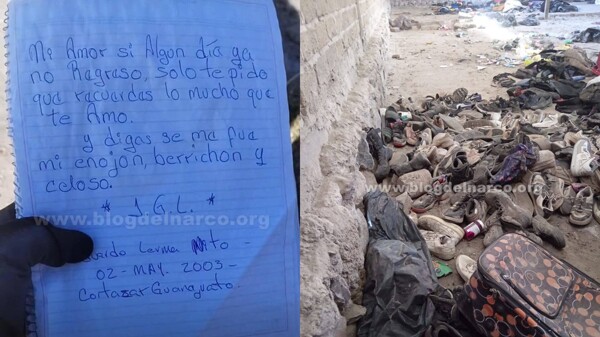 Mi Amor si Algun día ya
no Ragraso, solo te pido
qua racuardas lo mucho que
te Amo.
y digas se ma fua
mi enojon, berrichon y
celoso.
* J.G.L. *
www.blogdelnarco.org
Lerma Nito -
02 - MAY. 2003 -
Cortazar Guanajuato.
www.blogdelnarco.org